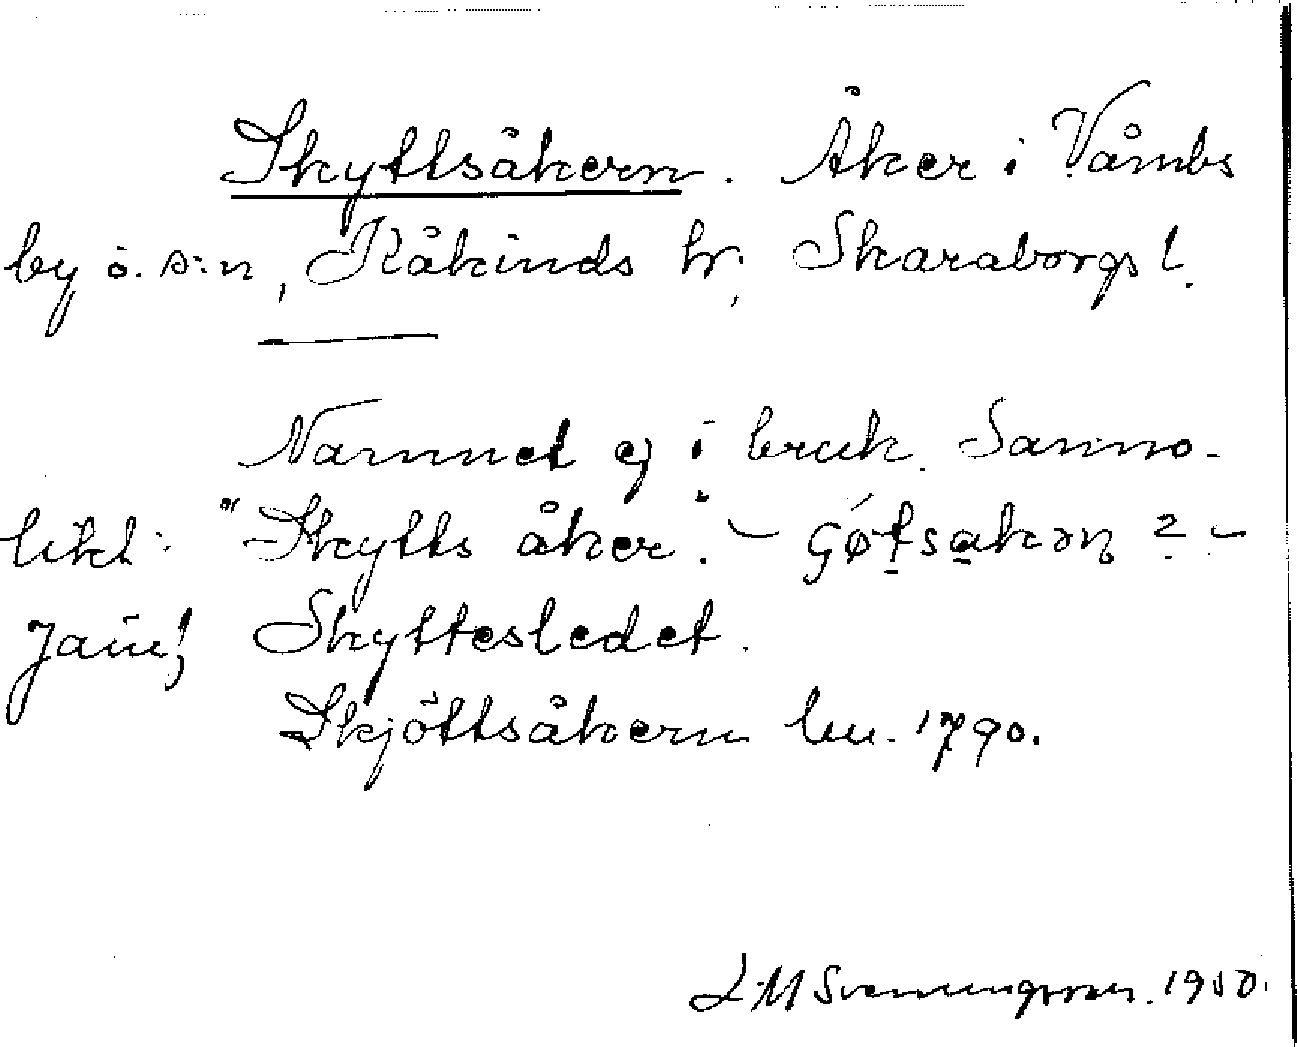 Skyttsåkern. Åker i Våmbs
by o. s:n, Kåkinds hr, Skaraborgs l.
Namnet ej i bruk. Sanno-
likt: "Skytts åker." –  –
Jämf Skyttesledet.
Skjöttsåkern lm. 1790.
L M Svenungsson. 1950.